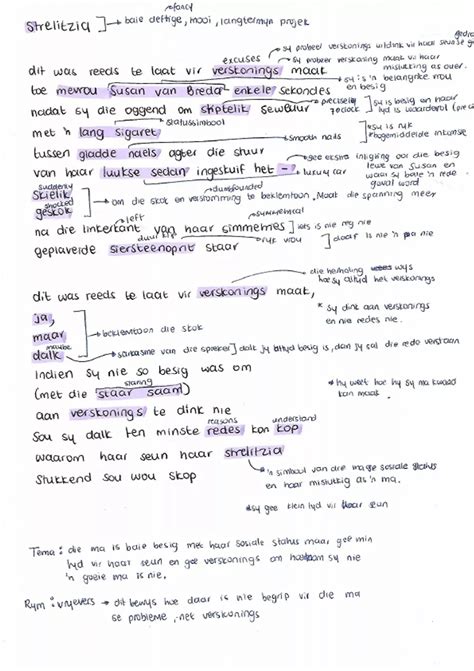 fancy
strelitzia ] → baie deftige, mooi, langtermyn projek
excuses
sy probeer verskonings maak vir haar
dit was reeds te laat vir verskonings maak
mislukking as ouer.
sy is 'n belangrike vrou en besig
toe mevrou Susan van Breda enkele sekondes
nadat sy die oggend om stiptelik seweuur
precisely 7 oclock
sy is besig en haar tyd is waardevol
statussimbool
met 'n lang sigaret
smooth nails
sy is ryk
hogemiddelde inkomste
tussen gladde naels agter die stuur
van haar luukse sedan ingeskuif het –
luxury car
gee ekstra inligting oor die besig lewe van Susan en
suddenly
Skielik
shocked
geskok
dumbfounded
om die skok en verstomming te beklemtoon. Maak die spanning meer
left
symmetrical
na die linkerkant van haar simmetriese
iets is nie reg nie
geplaveide siersteenoprit staar
ryk vrou
daar is nie 'n pa nie
die herhaling wys hoe sy altyd het verskonings
dit was reeds te laat vir verskonings maak,
ja,
maar
beklemtoon die skok
* sy dink aan verskonings en nie redes nie.
maybe
dalk → sarkasme van die spreker ] dalk sy altyd besig is, dan sy sal die rede verstaan
Indien sy nie so besig was om
staring
(met die staar saam)
* hy weet hoe hy sy ma kwaad kan maak.
aan verskonings te dink nie
reasons
understand
Sou sy dalk ten minste redes kon kop
waarom haar seun haar strelitzia
stukkend sou wou skop
* 'n simbool van die ma se sosiale status en haar mislukking as 'n ma.
* sy gee klein tyd vir haar seun
Tema : die ma is baie besig met haar sosiale status maar gee min
tyd vir haar seun en gee verskonings om hoekom sy nie
'n goeie ma is nie.
Rym : vryevers → dit bewys hoe daar is nie begrip vir die ma
se probleme, net verskonings